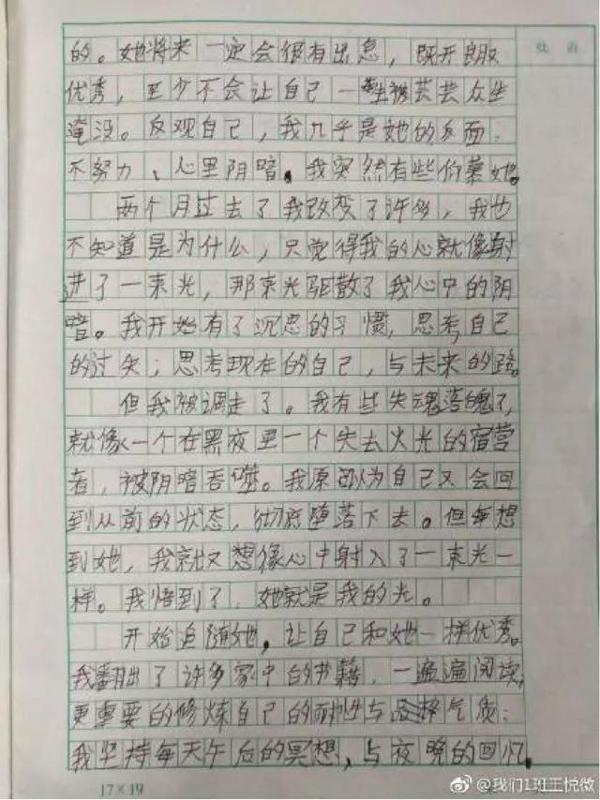 批语
的。她将来一定会很有出息，既开朗又
优秀，至少不会让自己一生被芸芸众生
淹没。反观自己，我几乎是她的反面，
不努力、心里阴暗。我突然有些仰慕她。
两个月过去了我改变了许多，我也
不知道是为什么，只觉得我的心就像射
进了一束光，那束光驱散了我心中的阴
暗。我开始有了沉思的习惯，思考自己
的过失；思考现在的自己，与未来的路。
但我被调走了。我有些失魂落魄了，
就像一个在黑夜里一个失去火光的宿营
者，被阴暗吞噬。我原以为自己又会回
到从前的状态，彻底堕落下去。但每想
到她，我就又想像心中射入了一束光一
样。我悟到了，她就是我的光。
开始追随她，让自己和她一样优秀。
我翻出了许多家中的书籍，一遍遍阅读，
更重要的修炼自己的耐性与气质；
我坚持每天午后的冥想，与夜晚的回忆，
17×19
@我们1班王悦微